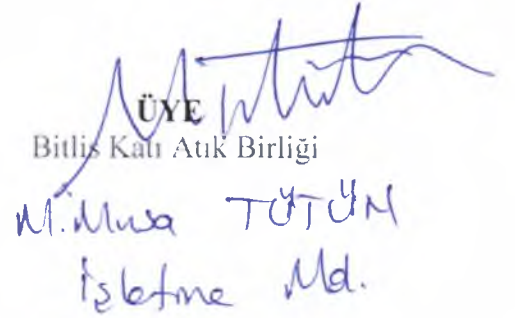 ÜYE
Bitlis Katı Atık Birliği
M. Musa TÜTÜN
İşletme Md.